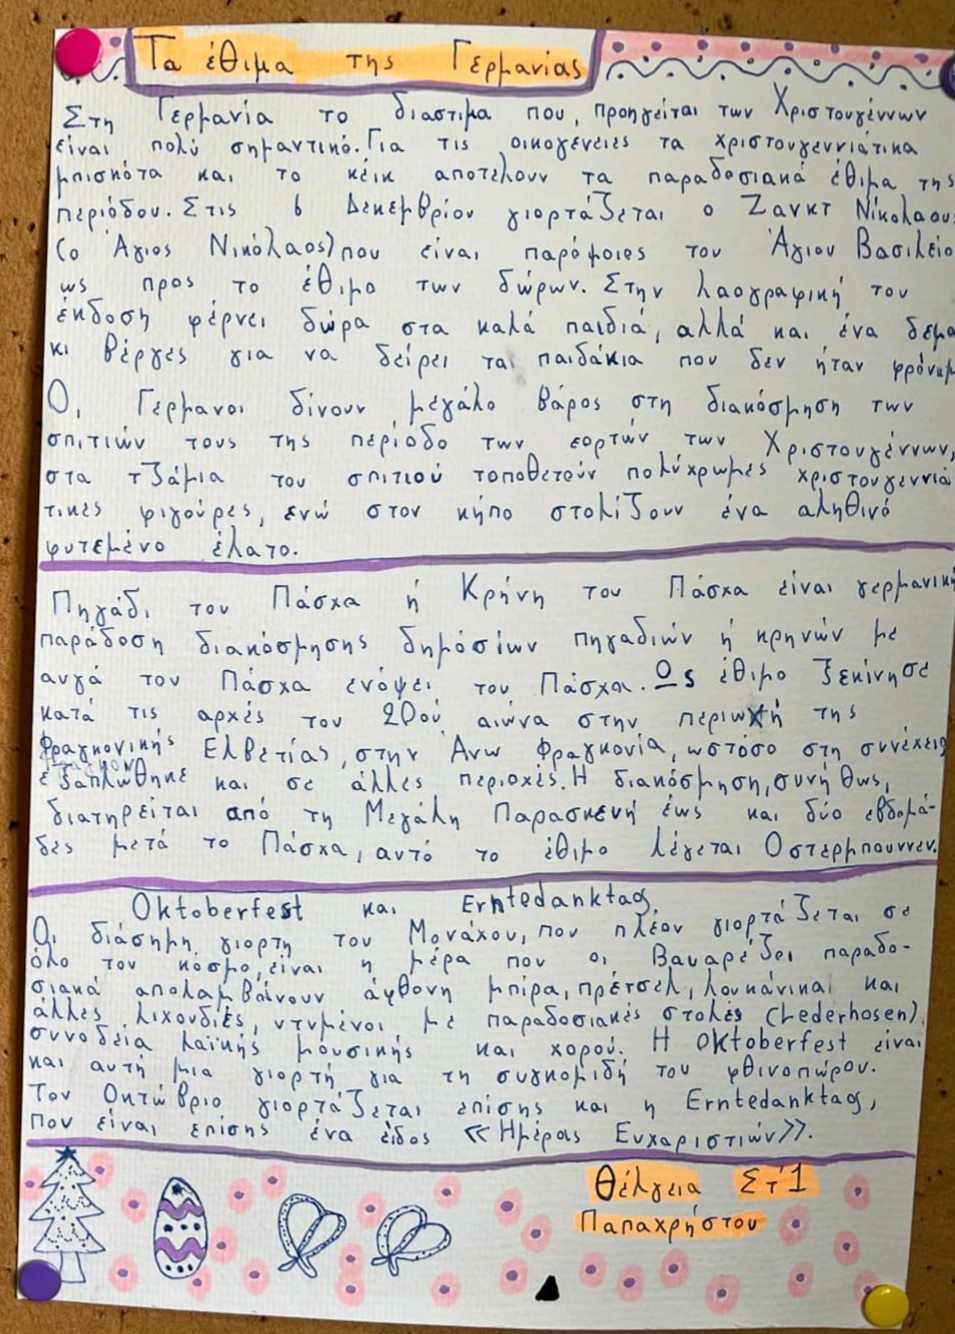 Τα έθιμα της Γερμανίας
Στη Γερμανία το διαστιμα που, προηγείται των Χριστουγέννων
είναι πολύ σημαντικό. Για τις οικογένειες τα χριστουγεννιάτικα
μπισκότα και το κέικ αποτελουν τα παραδοσιακά έθιμα της
περιόδου. Στις 6 Δεκεμβρίου γιορτάζεται ο Ζανκτ Νίκολαους
(ο Άγιος Νικόλαος) που είναι παρόμοιος του Άγιου Βασιλείο
ως προς το έθιμο των δώρων. Στην λαογραφική του
έκδοση φέρνει δώρα στα καλά παιδιά, αλλά και ένα δεμα
κι βέργες για να δείρει τα παιδάκια που δεν ήταν φρόνιμ
Οι Γερμανοι δίνουν μεγάλο βάρος στη διακόσμηση των
σπιτιών τους της περίοδο των εορτών των Χριστουγέννων,
στα τζάμια του σπιτιού τοποθετούν πολύχρωμες χριστουγεννιά
τικες φιγούρες, ενώ στον κήπο στολίζουν ένα αληθινό
φυτεμένο έλατο.
Πηγάδι του Πάσχα ή Κρήνη του Πάσχα είναι γερμανική
παράδοση διακόσμησης δημόσίων πηγαδιών ή κρηνών με
αυγά του Πάσχα ενόψει του Πάσχα. Ος έθιμο ξεκίνησε
κατά τις αρχές του 20ού αιώνα στην περιωχή της
Φραγκονικής Ελβετίας, στην Άνω Φραγκονία, ωστόσο στη συνέχεια
εξαπλώθηκε και σε άλλες περιοχές. Η διακόσμηση, συνήθως,
διατηρείται από τη Μεγάλη Παρασκευή έως και δύο εβδομά-
δες μετά το Πάσχα, αυτό το έθιμο λέγεται Οστερμπουννεν.
Oktoberfest και Erntedanktag
Οι διάσημη γιορτη του Μονάχου, που πλέον γιορτάζεται σε
όλο τον κόσμο, είναι η μέρα που οι Βαυαρέζοι παραδο-
σιακά απολαμβάνουν άφθονη μπίρα, πρέτσελ, λουκάνικαι και
άλλες λιχουδιές, ντυμένοι με παραδοσιακές στολές (Lederhosen),
συνοδεία λαϊκής μουσικής και χορού. Η Oktoberfest είναι
και αυτή μια γιορτή για τη συγκομιδή του φθινοπώρου.
Τον Οκτώβριο γιορτάζεται επίσης και η Erntedanktag,
που είναι επίσης ένα είδος «Ημέρας Ευχαριστιών».
Θέλγεια Στ'1
Παπαχρήστου